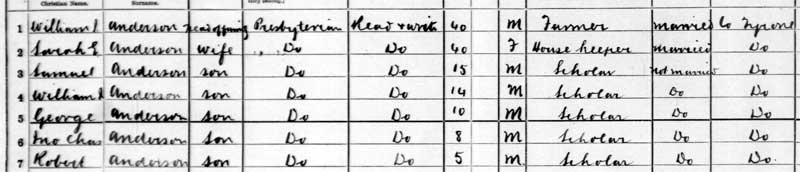 Christian Name. Surname.
1 William J Anderson Head of Family Presbyterian Read & write 40 M Farmer married Co Tyrone
2 Sarah E Anderson Wife Do Do 40 F House keeper married Do
3 Samuel Anderson son Do Do 15 M Scholar not married Do
4 William Anderson son Do Do 14 M Scholar Do Do
5 George Anderson son Do Do 10 M Scholar Do Do
6 Jno Chas Anderson son Do Do 8 M Scholar Do Do
7 Robert Anderson son Do Do 5 M Scholar Do Do